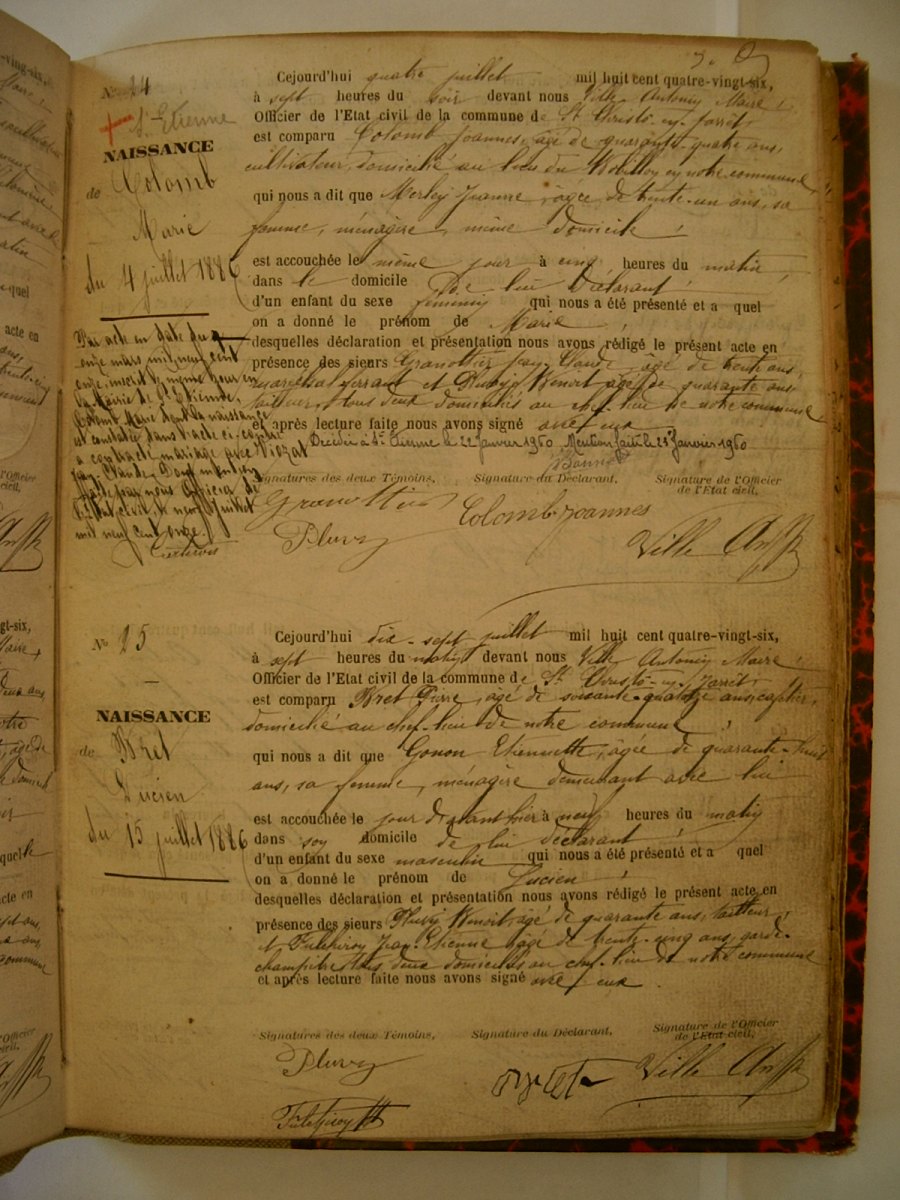 Nº 24
St Etienne
NAISSANCE
de Colomb
Marie
du 4 juillet 1886
Par acte en date du
onze mars mil neuf cent
onze, inscrit le même jour en
la Mairie de St Etienne,
Colomb Marie dont la naissance
est constatée dans l'acte ci-contre
a contracté mariage avec Viozat
Jean Claude. Dont mention
faite par nous Officier de
l'Etat civil, le neuf juillet
mil neuf cent onze.
Cejourd'hui quatre juillet mil huit cent quatre-vingt-six,
à sept heures du soir devant nous Ville Antonin Maire,
Officier de l'Etat civil de la commune de St Christô-en-Jarrêt
est comparu Colomb Joannes, âgé de quarante-quatre ans,
cultivateur, domicilié au lieu du en notre commune
qui nous a dit que Merley Jeanne, âgée de trente-un ans, sa
femme, ménagère, même domicile,
est accouchée le même jour à cinq heures du matin,
dans le domicile de lui déclarant
d'un enfant du sexe féminin qui nous a été présenté et a quel
on a donné le prénom de Marie,
desquelles déclaration et présentation nous avons rédigé le présent acte en
présence des sieurs Granottier Jean Claude âgé de trente ans,
maréchal ferrant et Pluvy Benoit âgé de quarante ans
tailleur, tous deux domiciliés au chef-lieu de notre commune
et après lecture faite nous avons signé avec eux
Décédée à St Etienne le 22 Janvier 1960 Mention faite le 25 Janvier 1960
Signatures des deux Témoins, Signature du Déclarant, Signature de l'Officier
de l'Etat civil,
Granottier Colomb Joannes
Pluvy Ville
Nº 25
NAISSANCE
de Bret
Lucien
du 15 juillet 1886
Cejourd'hui dix-sept juillet mil huit cent quatre-vingt-six,
à sept heures du matin devant nous Ville Antonin Maire,
Officier de l'Etat civil de la commune de St Christô-en-Jarrêt
est comparu Bret Pierre, âgé de soixante-quatorze ans, cafetier,
domicilié au chef-lieu de notre commune,
qui nous a dit que Gonon Etiennette, âgée de quarante-huit
ans, sa femme, ménagère demeurant avec lui
est accouchée le jour d'avant hier à neuf heures du matin
dans son domicile de lui déclarant
d'un enfant du sexe masculin qui nous a été présenté et a quel
on a donné le prénom de Lucien,
desquelles déclaration et présentation nous avons rédigé le présent acte en
présence des sieurs Pluvy Benoit, âgé de quarante ans, tailleur,
et Jean Etienne âgé de trente-cinq ans, garde-
champêtre tous deux domiciliés au chef-lieu de notre commune
et après lecture faite nous avons signé avec eux.
Signatures des deux Témoins, Signature du Déclarant, Signature de l'Officier
de l'Etat civil,
Pluvy Bret Ville